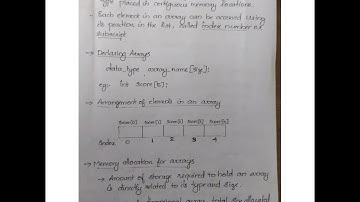 type placed in contiguous memory locations.
→ Each element in an array can be accessed using
its position in the list, called index number or
subscript
→ Declaring Arrays
data_type array_name[size];
eg:- int score[5];
→ Arrangement of elements in an array
Score[0] Score[1] Score[2] Score[3] Score[4]
Index 0 1 2 3 4
→ Memory allocation for arrays
→ Amount of storage required to hold an array
is directly related to its type and size.
dimensional array, total size allocated